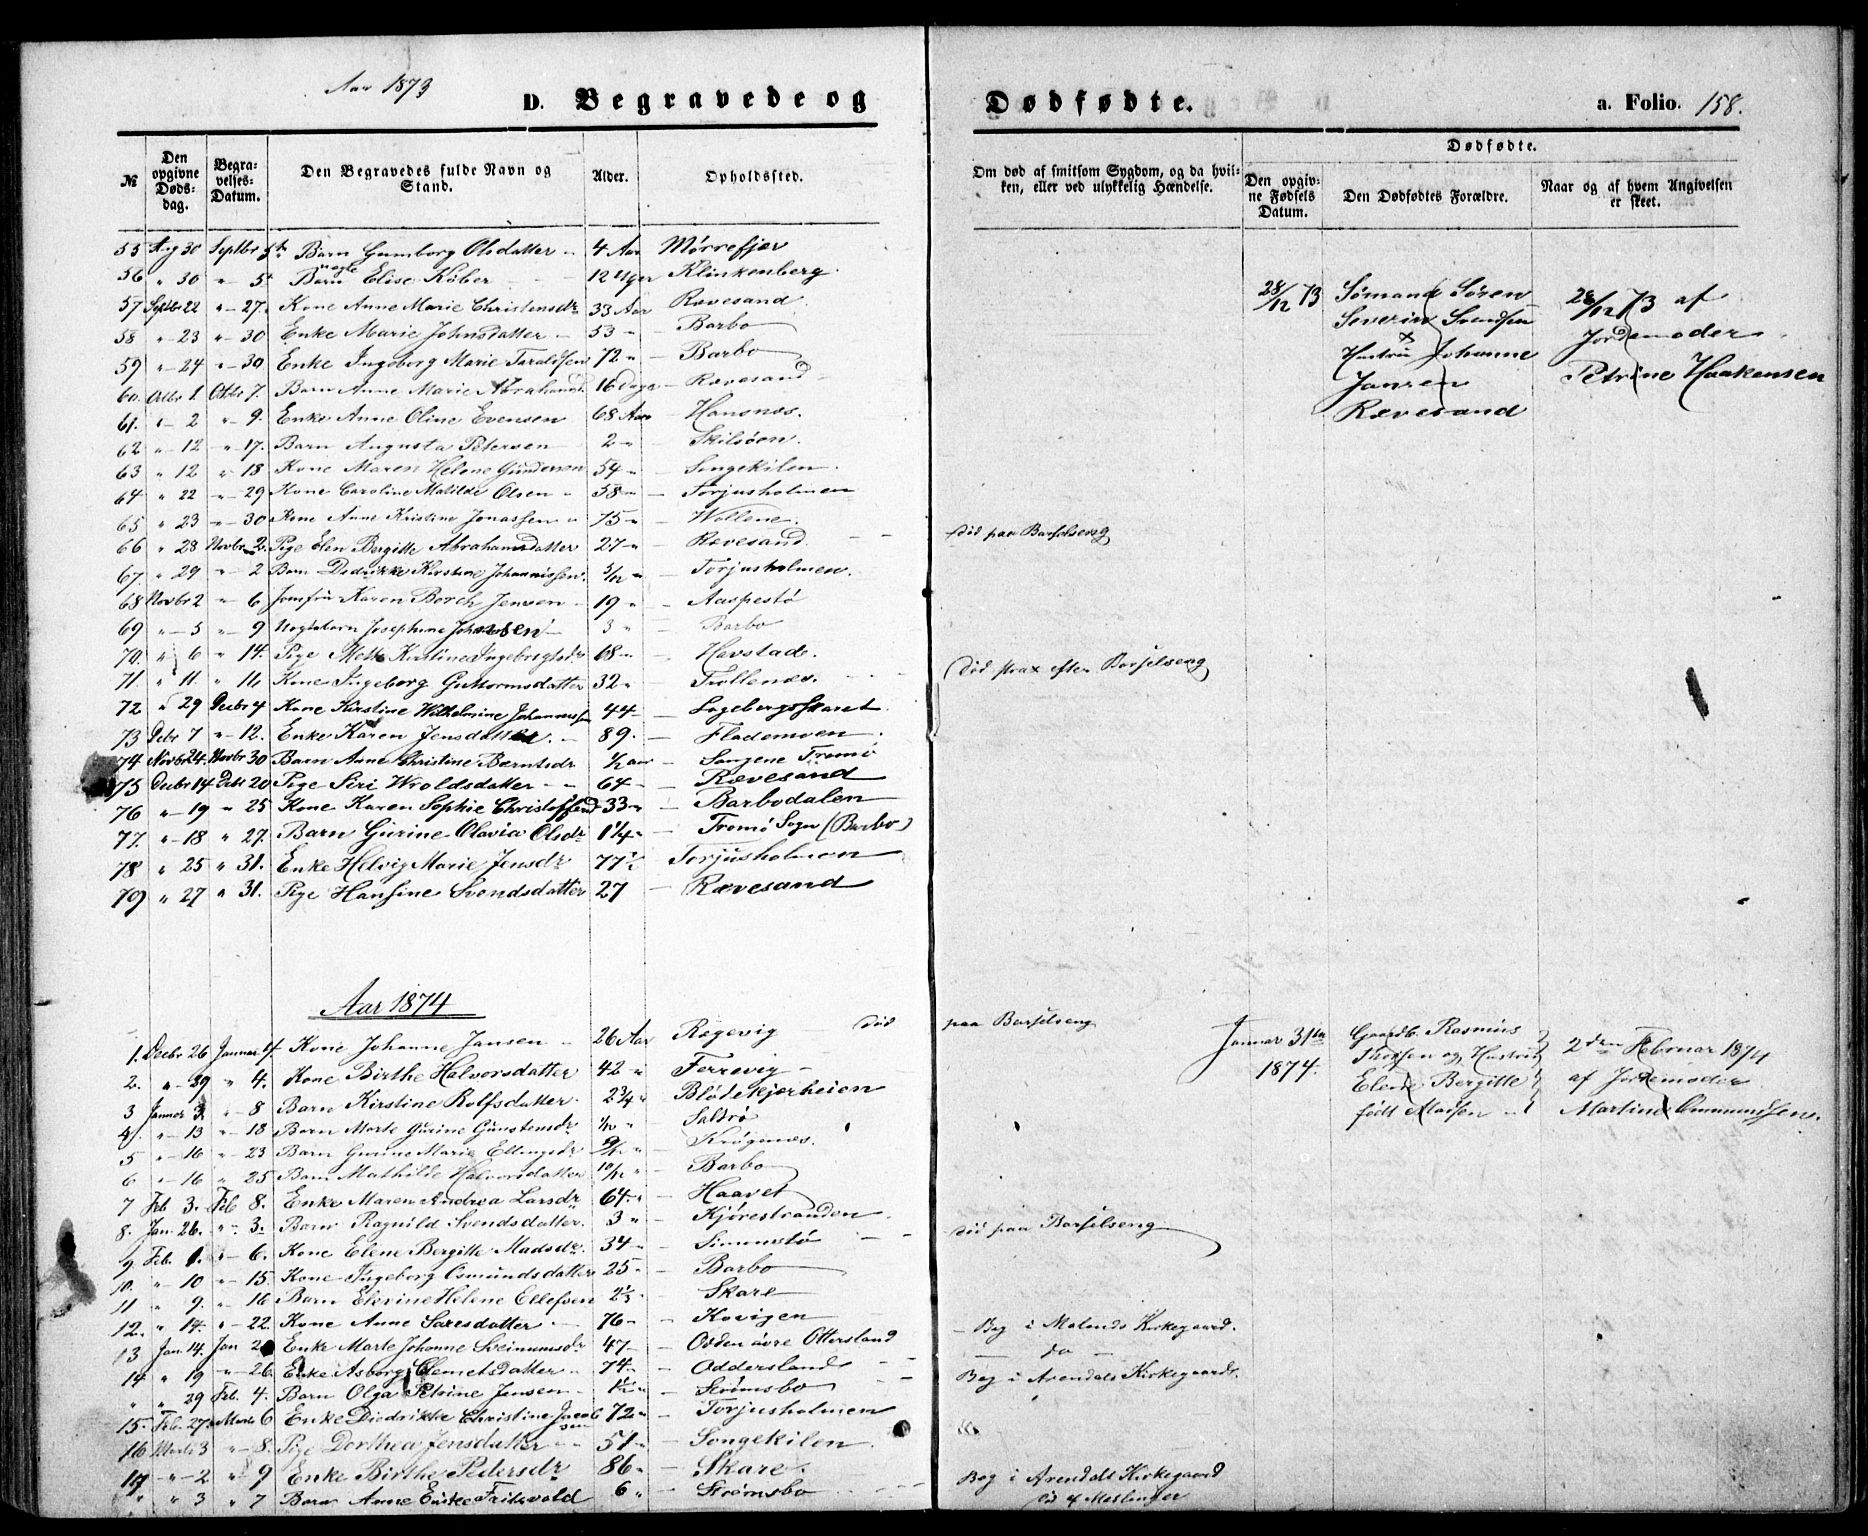 Aar 1873
D. Begravede og Dødfødte. a. Folio. 158.
№ | Den opgivne Døds-dag. | Begra-velses-Datum. | Den Begravedes fulde Navn og Stand. | Alder. | Opholdssted. | Om død af smitsom Sygdom, og da hvil-ken, eller ved ulykkelig Hændelse. | Dødfødte. | Den opgiv-ne Fødsels Datum. | Den Dødfødtes Forældre. | Naar og af hvem Angivelsen er skeet.
55 Aug 30 Septbr 5te Barn Gumborg Olsdatter 4 Aar Mørrefjær
56 " 30 " 5t Barn uægte Elise Køber 12 Uger Klinkenberg
57 Septbr 22 " 27. Kone Anne Marie Christensdr 33 Aar Rævesand
58 " 23 " 30 Enke Marie Johnsdatter 53 " Barbo
59 " 24 " 30 Enke Ingeborg Marie Taraldsen 72 " Barbo
60 Octbr 1. Octbr 7. Barn Anne Marie Abrahamsd 16 Dage Rævesand
61. " 2 " 9. Enke Anne Oline Evensen 68 Aar Hansnæs.
62 " 12 " 17. Barn Augusta Petersen 2 " Skilsøen.
63 " 12 " 18 Kone Maren Helene Gundersen 54 " Songekilen.
64 " 22 " 29 Kone Caroline Matilde Olsen 58 " Torjusholmen
65 " 23 " 30 Kone Anne Kristine Jonassen 75 " Wollene.
66 " 28 Novbr 2. Pige Elen Bergitte Abrahamsdatter 27 " Rævesand død paa Barselseng
67 " 29 " 2 Barn Didrikke Kirstine Johannissen 5/12 " Torjusholmen.
68 Novbr 2 " 6 Jomfru Karen Borch Jensen 19 " Aaspestø
69 " 5 " 9 Uægtebarn Josephine Johansen 3 " Barbo
70. " 6 " 14. Pige Mette Kirstine Ingebregtsdr 68 " Havstad.
71. " 11 " 14 Kone Ingeborg Guttormsdatter 32 " Tollenæs. død strax efter Barselseng
72 " 29 Decbr 4 Kone Kirstine Wilhelmine Johannessen 44 Longebergsskaret
73 Debr 7 " 12. Enke Karen Jensdatter 89. Flademoen
74 Novbr 24. Novbr 30 Barn Anne Christine Berntsdr 1/2 aar Songene Tromø
75 Decbr 14 Debr 20 Pige Siri Wroldsdatter 64 Rævesand
76 " 19 " 25 Kone Karen Sophie Christoffersd 33 " Barbodalen
77. " 18 " 27. Barn Gurine Olavia Olsdr 1 1/4 " Tromø Sogn (Barbo)
78 " 25 " 31. Enke Helvig Marie Jensdr 77 1/2 Torjusholmen
79 " 27 " 31. Pige Hansine Svendsdatter 27 Rævesand
28/12 73 Sømand Søren
Severin Svendsen
Hustru Johanne
Jansen
Rævesand
28/12 73 af
Jordemoder
Petrine Haakensen
Aar 1874
1. Decbr 26 Januar 4. Kone Johanne Jansen 26 Aar Rægevig død paa Barselseng
2. " 29 " 4. Kone Birthe Halvorsdatter 42 " Ferrevig
3 Januar 3. " 8 Barn Kirstine Rolfsdatter 2 3/4 " Blødekjærheien
4. " 13 " 18 Barn Marte Gurine Gunstensdr 1/12 " Saltrø
5 " 16 " 23 Barn Gurine Marie Ellingsdr 9/12 " Krøgenæs.
6 " 16 " 25 Barn Mathilde Halvorsdatter 10/12 " Barbo
7 Feb 3. Feb 8. Enke Maren Andrea Larsdr 64. " Haavet
8. Jan. 26. " 3. Barn Ragnild Svendsdatter 3 " Kjørestranden
9 Feb. 1. " 6. Kone Elene Bergitte Madsdr 34 " Simonstø død paa Barselseng
10. " 10 " 15. Kone Ingeborg Osmundsdatter 25 " Barbo
11 " 9. " 16 Barn Elevine Helene Ellefsen 2 1/3 " Skare
12. " 14. " 22. Kone Anne Saresdatter 76 " Kovigen
13 Jan. 14. Jan 2 Enke Marte Johanne Sveinumsdr 47 Odden øvre Ottersland Beg i Molands Kirkegaard.
14 " 19 " 26. Enke Asborg Clemetsdatter 74 " Oddersland do
" " 29 Feb. 4. Barn Olga Petrine Jensen 1 1/2 " Strømsbo Beg i Arendals Kirkegaard.
15. Feb. 27. Marts 6 Enke Diedrikke Christine Jacobsen 72 " Torjusholmen
16 Marts 3 " 8. Pige Dorthea Jensdatter 51 " Songekilen
17 " 2 " 9 Enke Birthe Pedersdr 86 " Skare.
" " 3 " 7 Barn Anne Enke Fritzvold 6 " Strømsbo Beg i Arendals Kirkegaard
død af Meslinger
Januar 31te
1874.
Gaardb. Rasmus
Thorsen og Hustru
Elene Bergitte
født Madsen
2den Februar 1874
af Jordemoder
Martine Ommundsen.